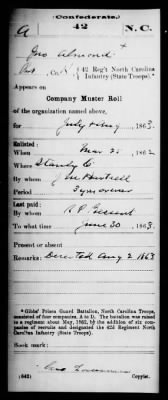 (Confederate.)
A 42 N.C.
Geo Almond
Pvt, Co. 42 Reg't North Carolina
Infantry (State Troops).*
Appears on
Company Muster Roll
of the organization named above,
for July & Aug, 1863.
Enlisted:
When Mar 21, 1862
Where Stanly Co
By whom
Period 3 years or war
Last paid:
By whom
To what time June 30, 1863.
Present or absent
Remarks: Deserted Aug 2, 1863
* Gibbs' Prison Guard Battalion, North Carolina Troops,
consisted of four companies, A to D. The battalion was raised
to a regiment about May, 1862, by the addition of six companies
of recruits and designated the 42d Regiment North
Carolina Infantry (State Troops).
Book mark:
(642)
Copyist.